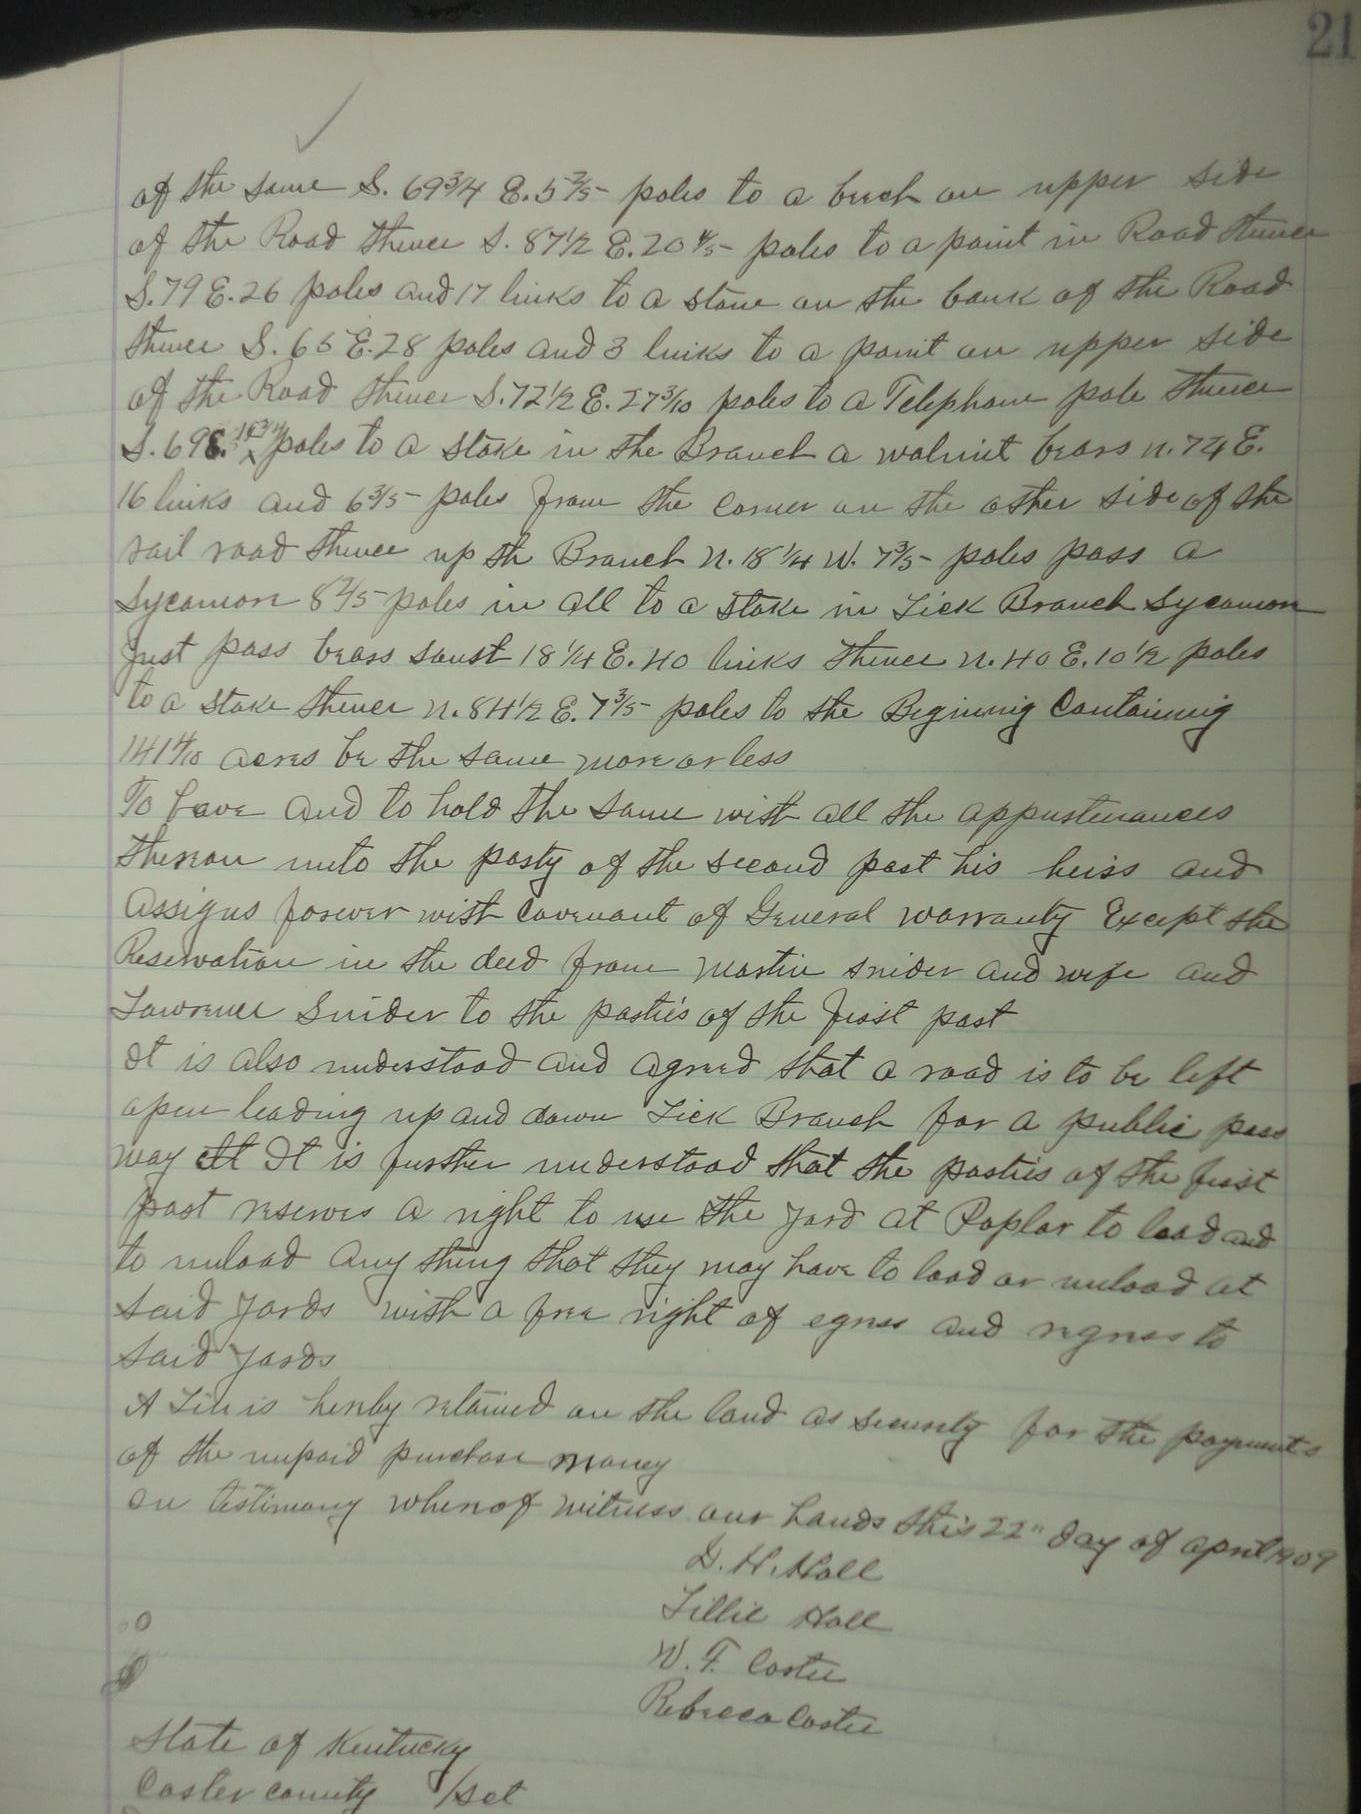 21
of the same S. 69 3/4 E. 5 2/5 poles to a beech on upper side
of the Road thence S. 87 1/2 E. 20 4/5 poles to a point in Road thence
S. 79 E. 26 poles and 17 links to a stone on the bank of the Road
thence S. 65 E. 28 poles and 3 links to a point on upper side
of the Road thence S. 72 1/2 E. 27 3/10 poles to a Telephone pole thence
S. 69 E. poles to a stake in the Branch a walnut bears N. 74 E.
16 links and 6 3/5 poles from the corner on the other side of the
rail road thence up th Branch N. 18 1/4 W. 7 3/5 poles pass a
Sycamore 8 2/5 poles in all to a stake in Lick Branch Sycamore
just pass bears south 18 1/4 E. 40 links thence N. 40 E. 10 1/2 poles
to a stake thence N. 84 1/2 E. 7 3/5 poles to the Beginning Containing
141 4/10 acres be the same more or less
To have and to hold the same with all the appurtenances
thereon unto the party of the second part his heirs and
assigns forever with Covenant of General warranty Except the
Reservation in the deed from Martin Snider and wife and
Lawrence Snider to the parties of the first part
It is also understood and agreed that a road is to be left
open leading up and down Lick Branch for a public pass
way It It is further understood that the parties of the first
part reserves a right to use the yard at Poplar to load and
to unload any thing that they may have to load or unload at
said yards with a free right of egress and regress to
said yards
A Lien is hereby retained on the land as security for the payments
of the unpaid purchase money
In testimony whereof witness our hands this 22" day of april 1909
D. H. Hall
Lillie Hall
W. F. Carter
Rebecca Carter
State of Kentucky
Carter county /set